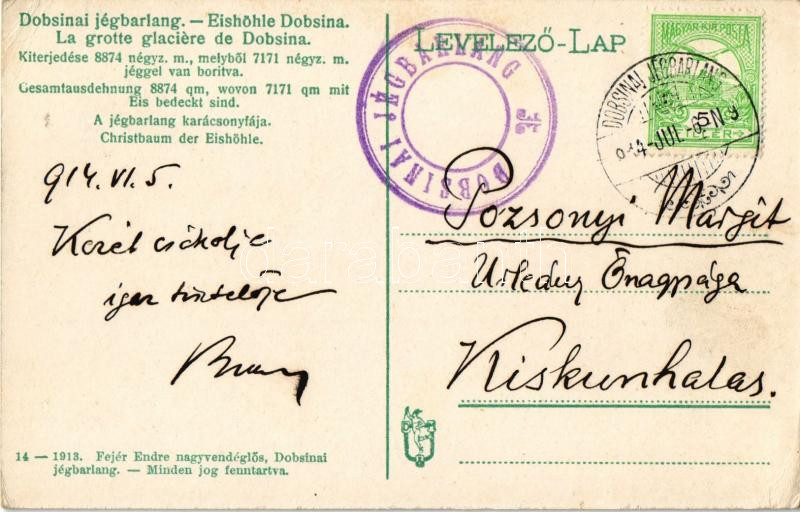 Dobsinai jégbarlang. — Eishöhle Dobsina.
La grotte glacière de Dobsina.
Kiterjedése 8874 négyz. m., melyből 7171 négyz. m.
jéggel van boritva.
Gesamtausdehnung 8874 qm, wovon 7171 qm mit
Eis bedeckt sind.
A jégbarlang karácsonyfája.
Christbaum der Eishöhle.
914. VI. 5.
Kezét csókolja
igaz tisztelője
DOBSINAI JÉGBARLANG
LEVELEZŐ-LAP
MAGYAR KIR. POSTA
DOBSINAI JÉGBARLANG
Pozsonyi Margit
Urleány Őnagysága
Kiskunhalas.
14 — 1913. Fejér Endre nagyvendéglős, Dobsinai
jégbarlang. — Minden jog fenntartva.
darabanth